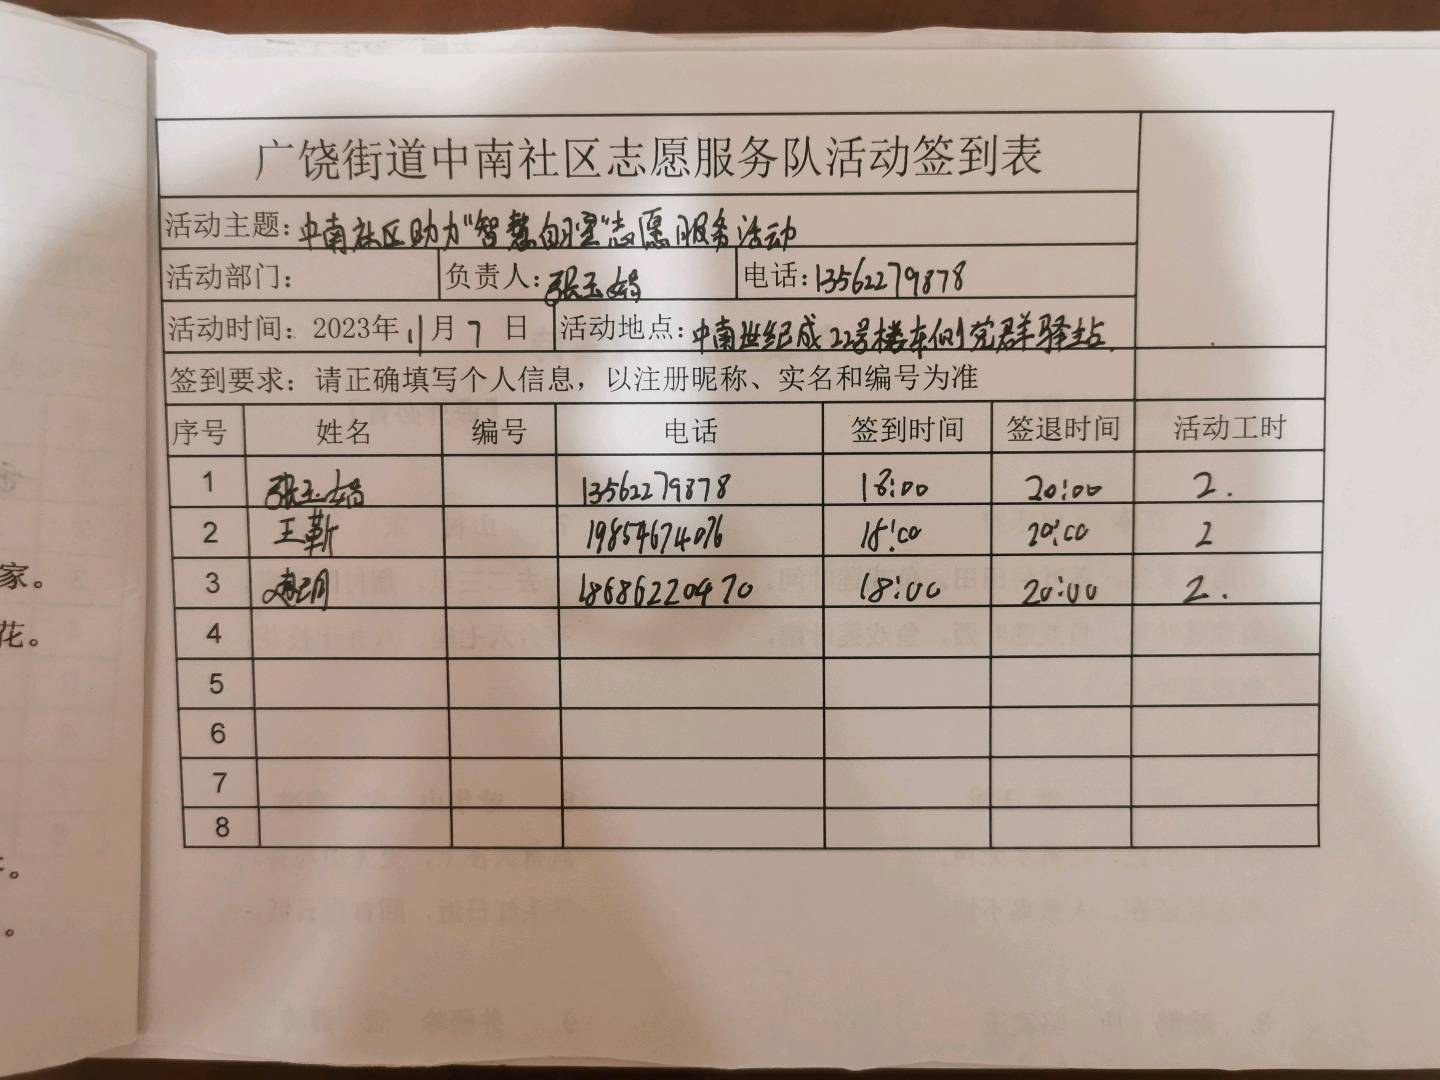 广饶街道中南社区志愿服务队活动签到表
活动主题：中南社区助力"智慧自习室"志愿服务活动
活动部门： 负责人：张玉娟 电话：13562279878
活动时间：2023年 11月 7 日 活动地点：中南世纪成22号楼车侧党群驿站
签到要求：请正确填写个人信息，以注册昵称、实名和编号为准
序号 姓名 编号 电话 签到时间 签退时间 活动工时
1 张玉娟 13562279878 18:00 20:00 2.
2 王靳 19854674076 18:00 20:00 2
3 18686220470 18:00 20:00 2.
4
5
6
7
8
家。
花。